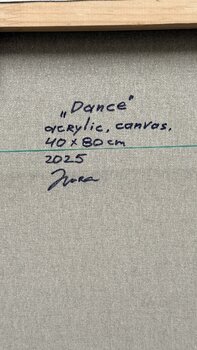 „Dance“
acrylic, canvas,
40 x 80 cm
2025